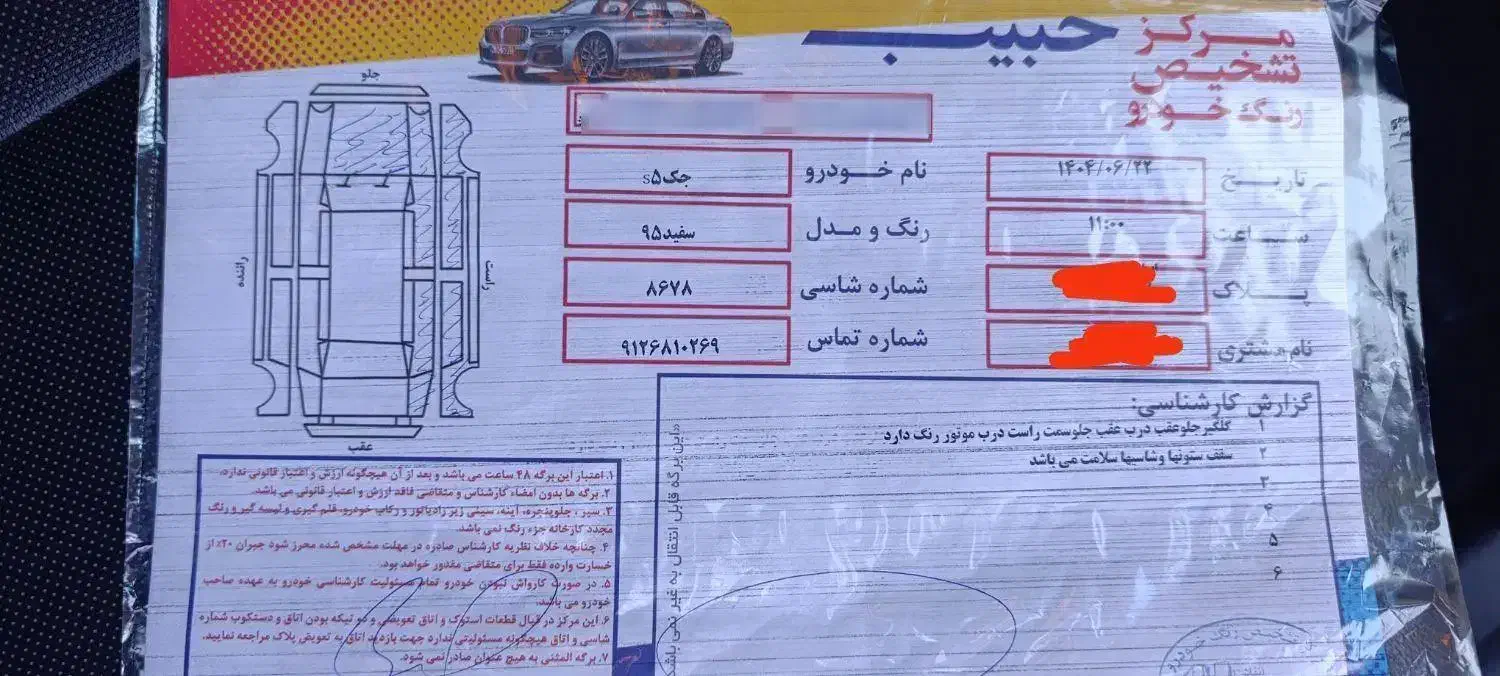 مرکز
تشخیص
رنگ خودرو
حبیب
تاریخ ۱۴۰۴/۰۶/۲۲
ساعت ۱۱:۰۰
پلاک
نام مشتری
نام خودرو جک s۵
رنگ و مدل سفید ۹۵
شماره شاسی ۸۶۷۸
شماره تماس ۹۱۲۶۸۱۰۲۶۹
جلو
راست
راننده
عقب
گزارش کارشناسی:
۱ گلگیرجلوعقب درب عقب جلوسمت راست درب موتور رنگ دارد
۲ سقف ستونها وشاسیها سلامت می باشد
۳
۴
۵
۶
«این برگه قابل انتقال به غیر نمی باشد
۱. اعتبار این برگه ۴۸ ساعت می باشد و بعد از آن هیچگونه ارزش و اعتبار قانونی ندارد.
۲. برگه ها بدون امضاء کارشناس و متقاضی فاقد ارزش و اعتبار قانونی می باشد.
۳. سپر، جلوپنجره، آینه، سینی زیر رادیاتور و رکاب خودرو، قلم گیری و لیسه گیر و رنگ
مجدد کارخانه جزء رنگ نمی باشد.
۴. چنانچه خلاف نظریه کارشناس صادره در مهلت مشخص شده محرز شود جبران ۲۰٪ از
خسارت وارده فقط برای متقاضی مقدور خواهد بود.
۵. در صورت کارواش نبودن خودرو تمام مسئولیت کارشناسی خودرو به عهده صاحب
خودرو می باشد.
۶. این مرکز در قبال قطعات استوک و اتاق تعویضی و دو تیکه بودن اتاق و دستکوب شماره
شاسی و اتاق هیچگونه مسئولیتی ندارد جهت بازدید اتاق به تعویض پلاک مراجعه نمایید.
۷. برگه المثنی به هیچ عنوان صادر نمی شود.